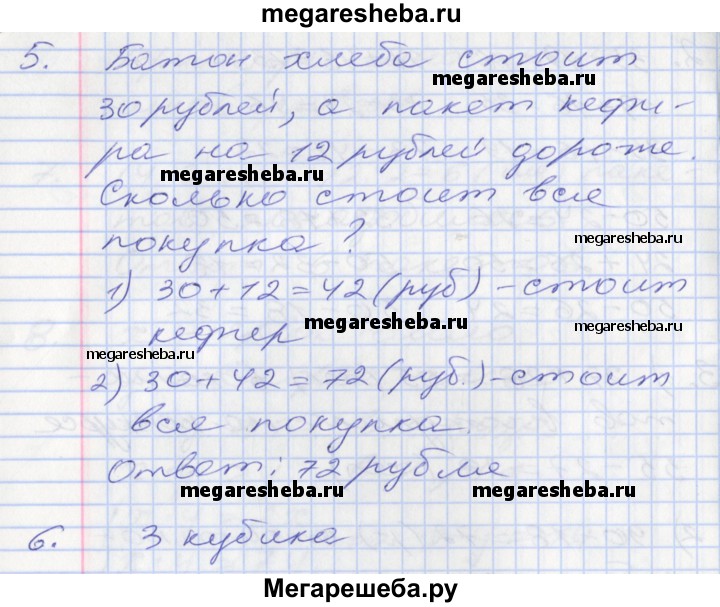 megaresheba.ru
5. Батон хлеба стоит
megaresheba.ru
30 рублей, а пакет кефи-
ра на 12 рублей дороже.
megaresheba.ru
Сколько стоит вся
покупка?
megaresheba.ru
1) 30+12=42 (руб) - стоит
кефир
megaresheba.ru
megaresheba.ru
megaresheba.ru
2) 30+42=72 (руб.) - стоит
вся покупка.
Ответ: 72 рубля
megaresheba.ru
megaresheba.ru
6. 3 кубика
Мегарешеба.ру